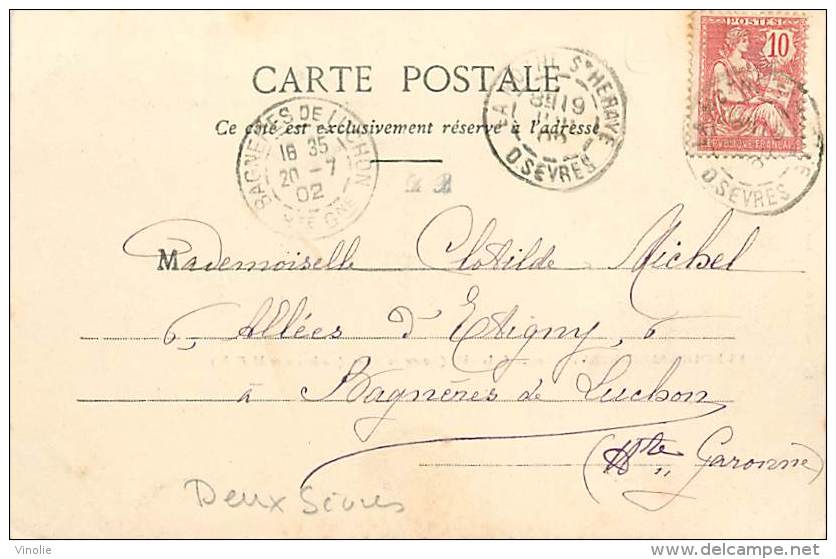 POSTES
10
CARTE POSTALE
Ce côté est exclusivement réservé à l'adresse
BAGNERES DE LUCHON
16 35
20 - 7
02
HTE GNE
ST HERAYE
19
02
D SEVRES
D SEVRES
Mademoiselle Clotilde Michel
6, Allées d'Etigny, 6
à Bagnères de Luchon
(Hte Garonne)
Deux Sèvres
Vinolie
http://www.delcampe.net